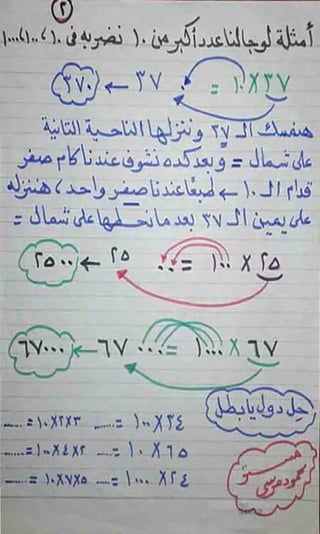 ٢
أمثلة لو جالنا عدد أكبر من ١٠ نضربه في ١٠، ١٠٠، ١٠٠٠
٣٧ × ١٠ = ٠ ٣٧ ← ٣٧٠
هنمسك الـ ٣٧ وننزلها الناحية التانية
على شمال = وبعد كده نشوف عندنا كام صفر
قدام الـ ١٠ ← طبعًا عندنا صفر واحد، هننزله
على يمين الـ ٣٧ بعد ما نحطها على شمال =
٢٥ × ١٠٠ = ٠٠ ٢٥ ← ٢٥٠٠
٦٧ × ١٠٠٠ = ٠٠٠ ٦٧ ← ٦٧٠٠٠
حل دول يا بطل
٣٤ × ١٠٠ = ...... ٣ × ٢ × ١٠ = ......
٦٥ × ١٠ = ...... ٢ × ٤ × ١٠٠ = ......
٢٤ × ١٠٠٠ = ...... ٥ × ٧ × ١٠ = ......
مستر
محمود مرسي